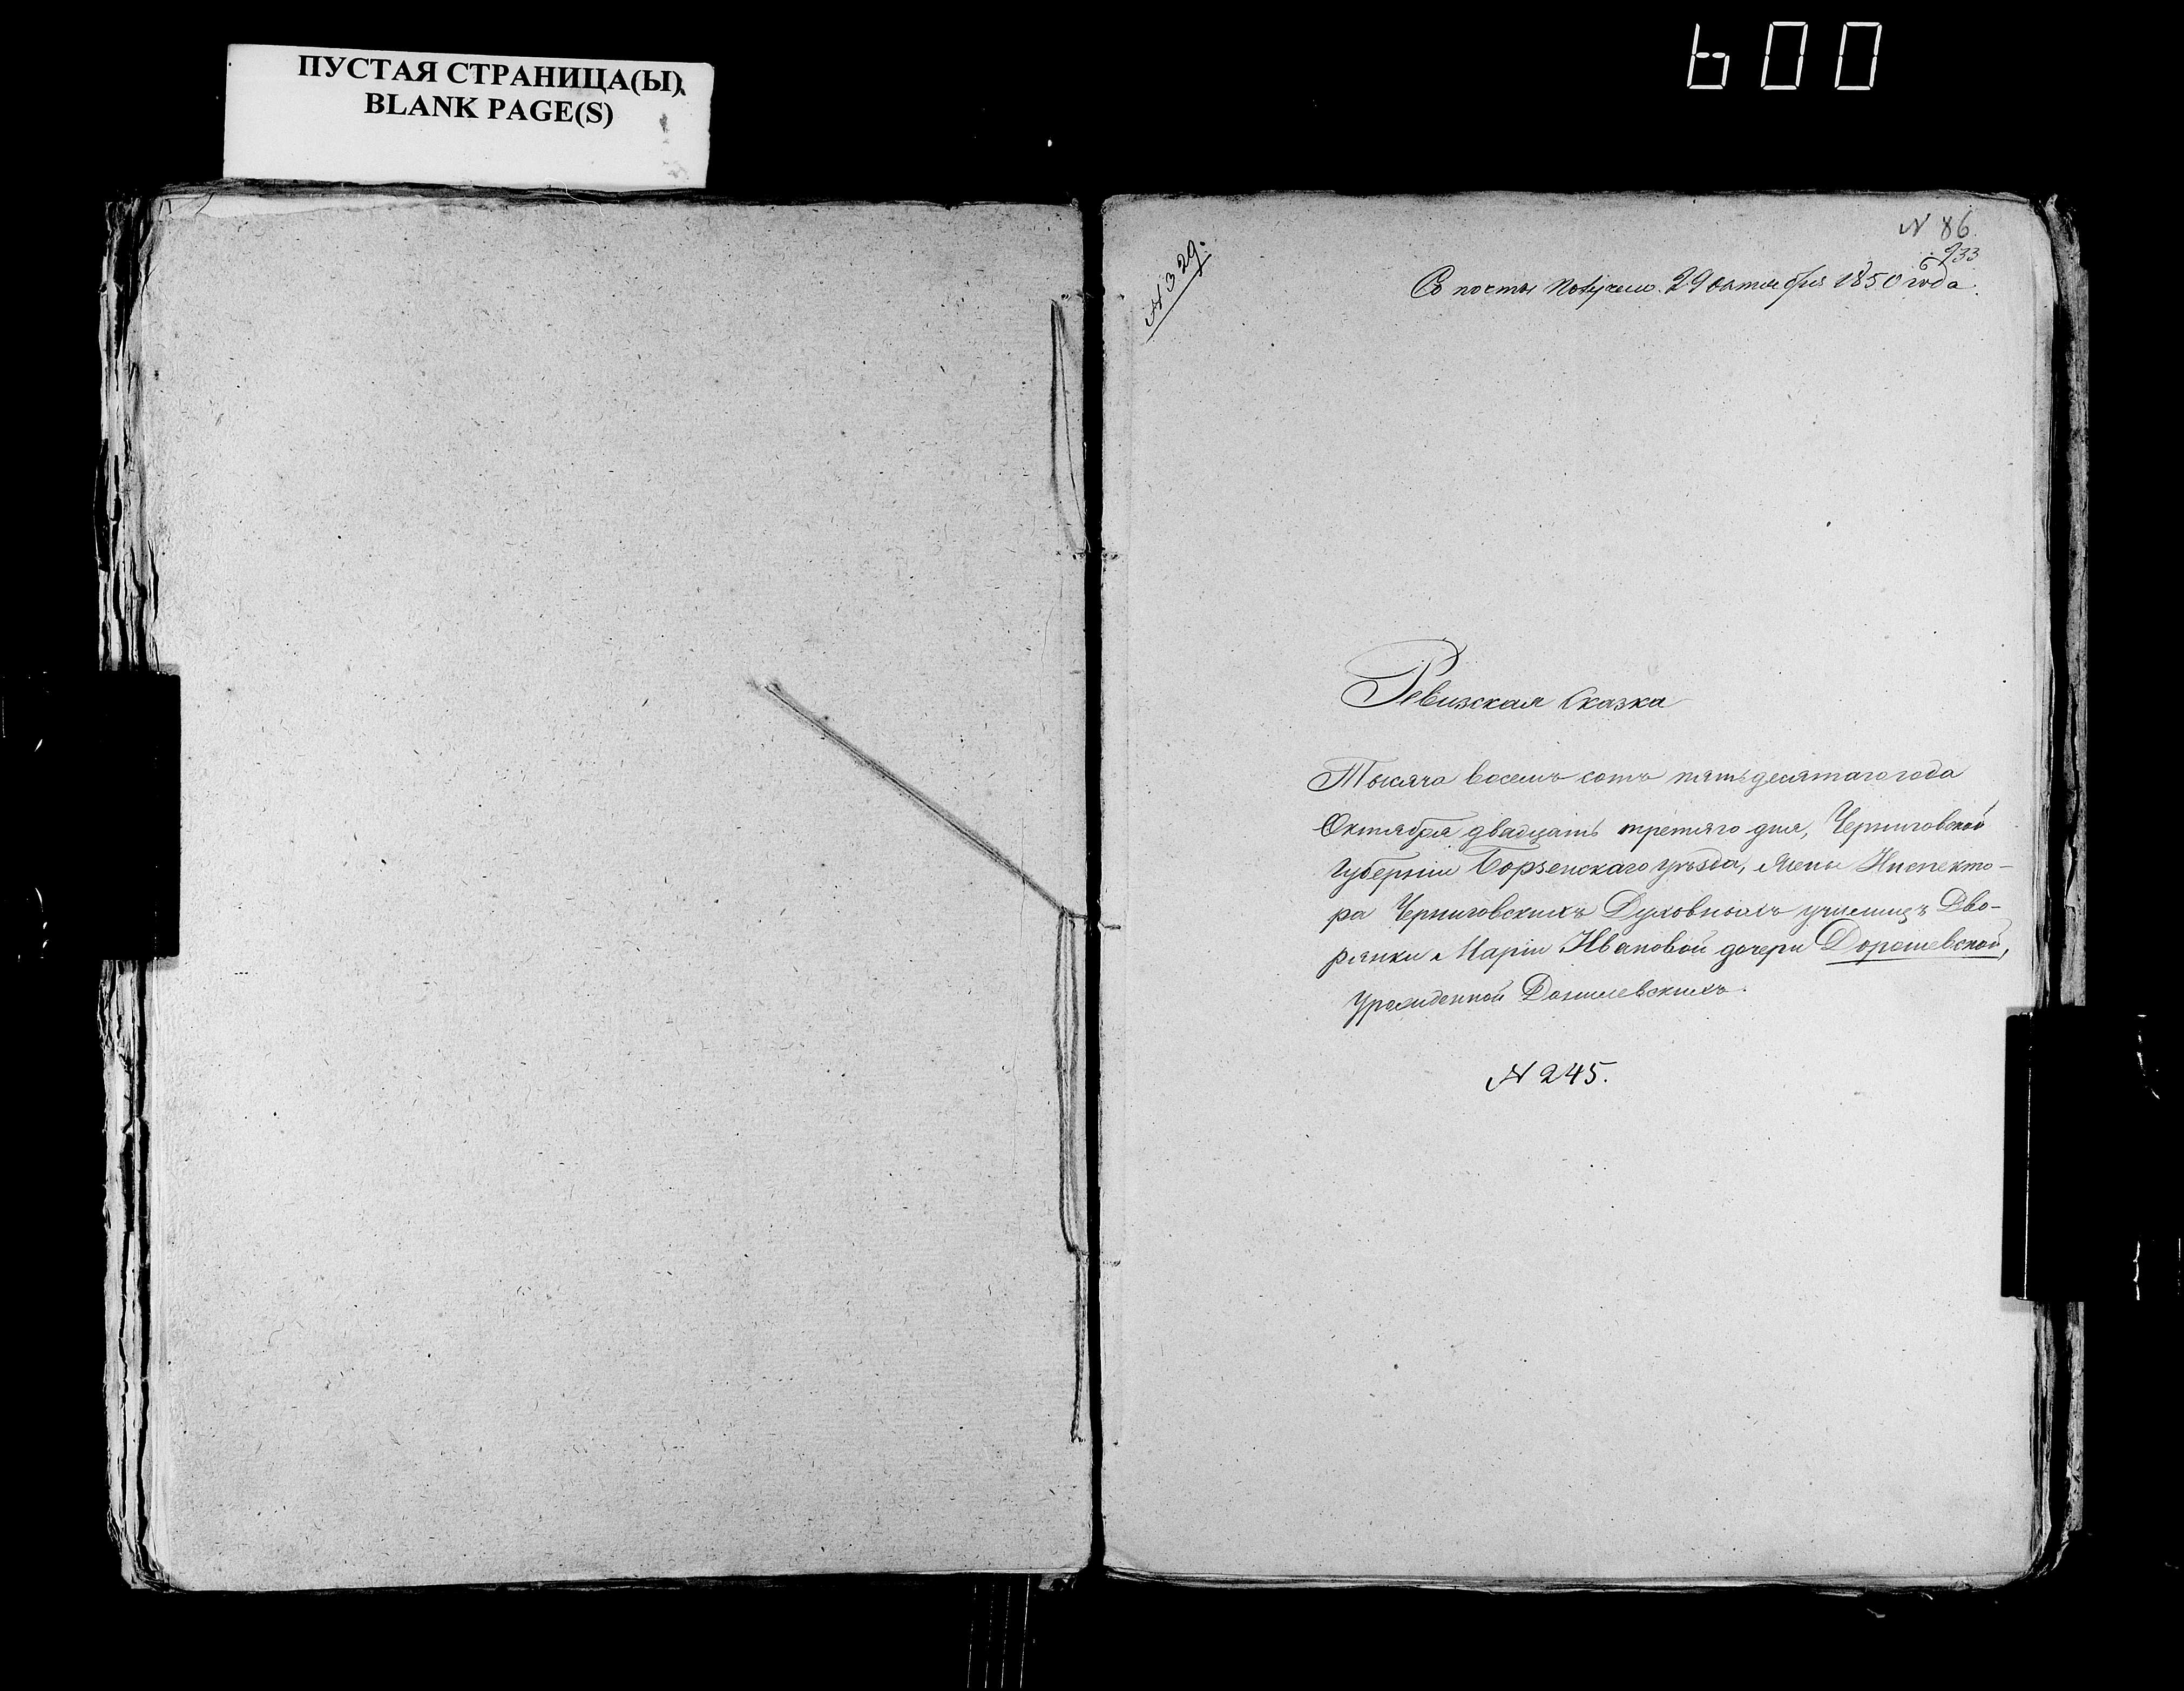 ПУСТАЯ СТРАНИЦА(Ы)
BLANK PAGE(S)
600
№ 329.
№ 86.
933
Со почты получен. 29 октября 1850 года.
Ревизская Сказка
Тысяча восемь сотъ пятьдесятаго года
Октября двадцать третяго дня, Черниговской
Губерніи Борзенскаго уѣзда, жены Инспекто-
ра Черниговскихъ Духовныхъ училищъ Дво-
рянки Маріи Ивановой дочери Дорошевской,
урожденной Данилевскихъ.
№ 245.